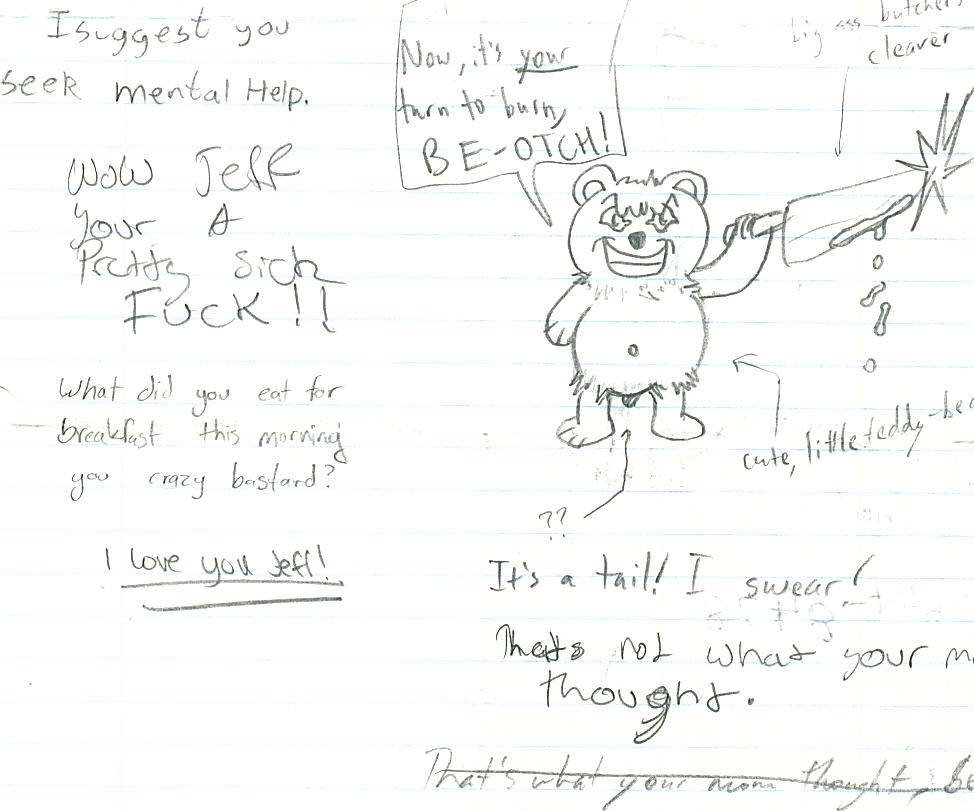 I suggest you
seek mental Help.
Wow Jeff
Your A
Pretty Sick
Fuck!!
What did you eat for
breakfast this morning
you crazy bastard?
I love you Jeff!
Now, it's your
turn to burn,
BE-OTCH!
big ass butchers
cleaver
cute, little teddy-bea
??
It's a tail! I swear!
Thats not what your m
thought.
That's what your mom thought, Be